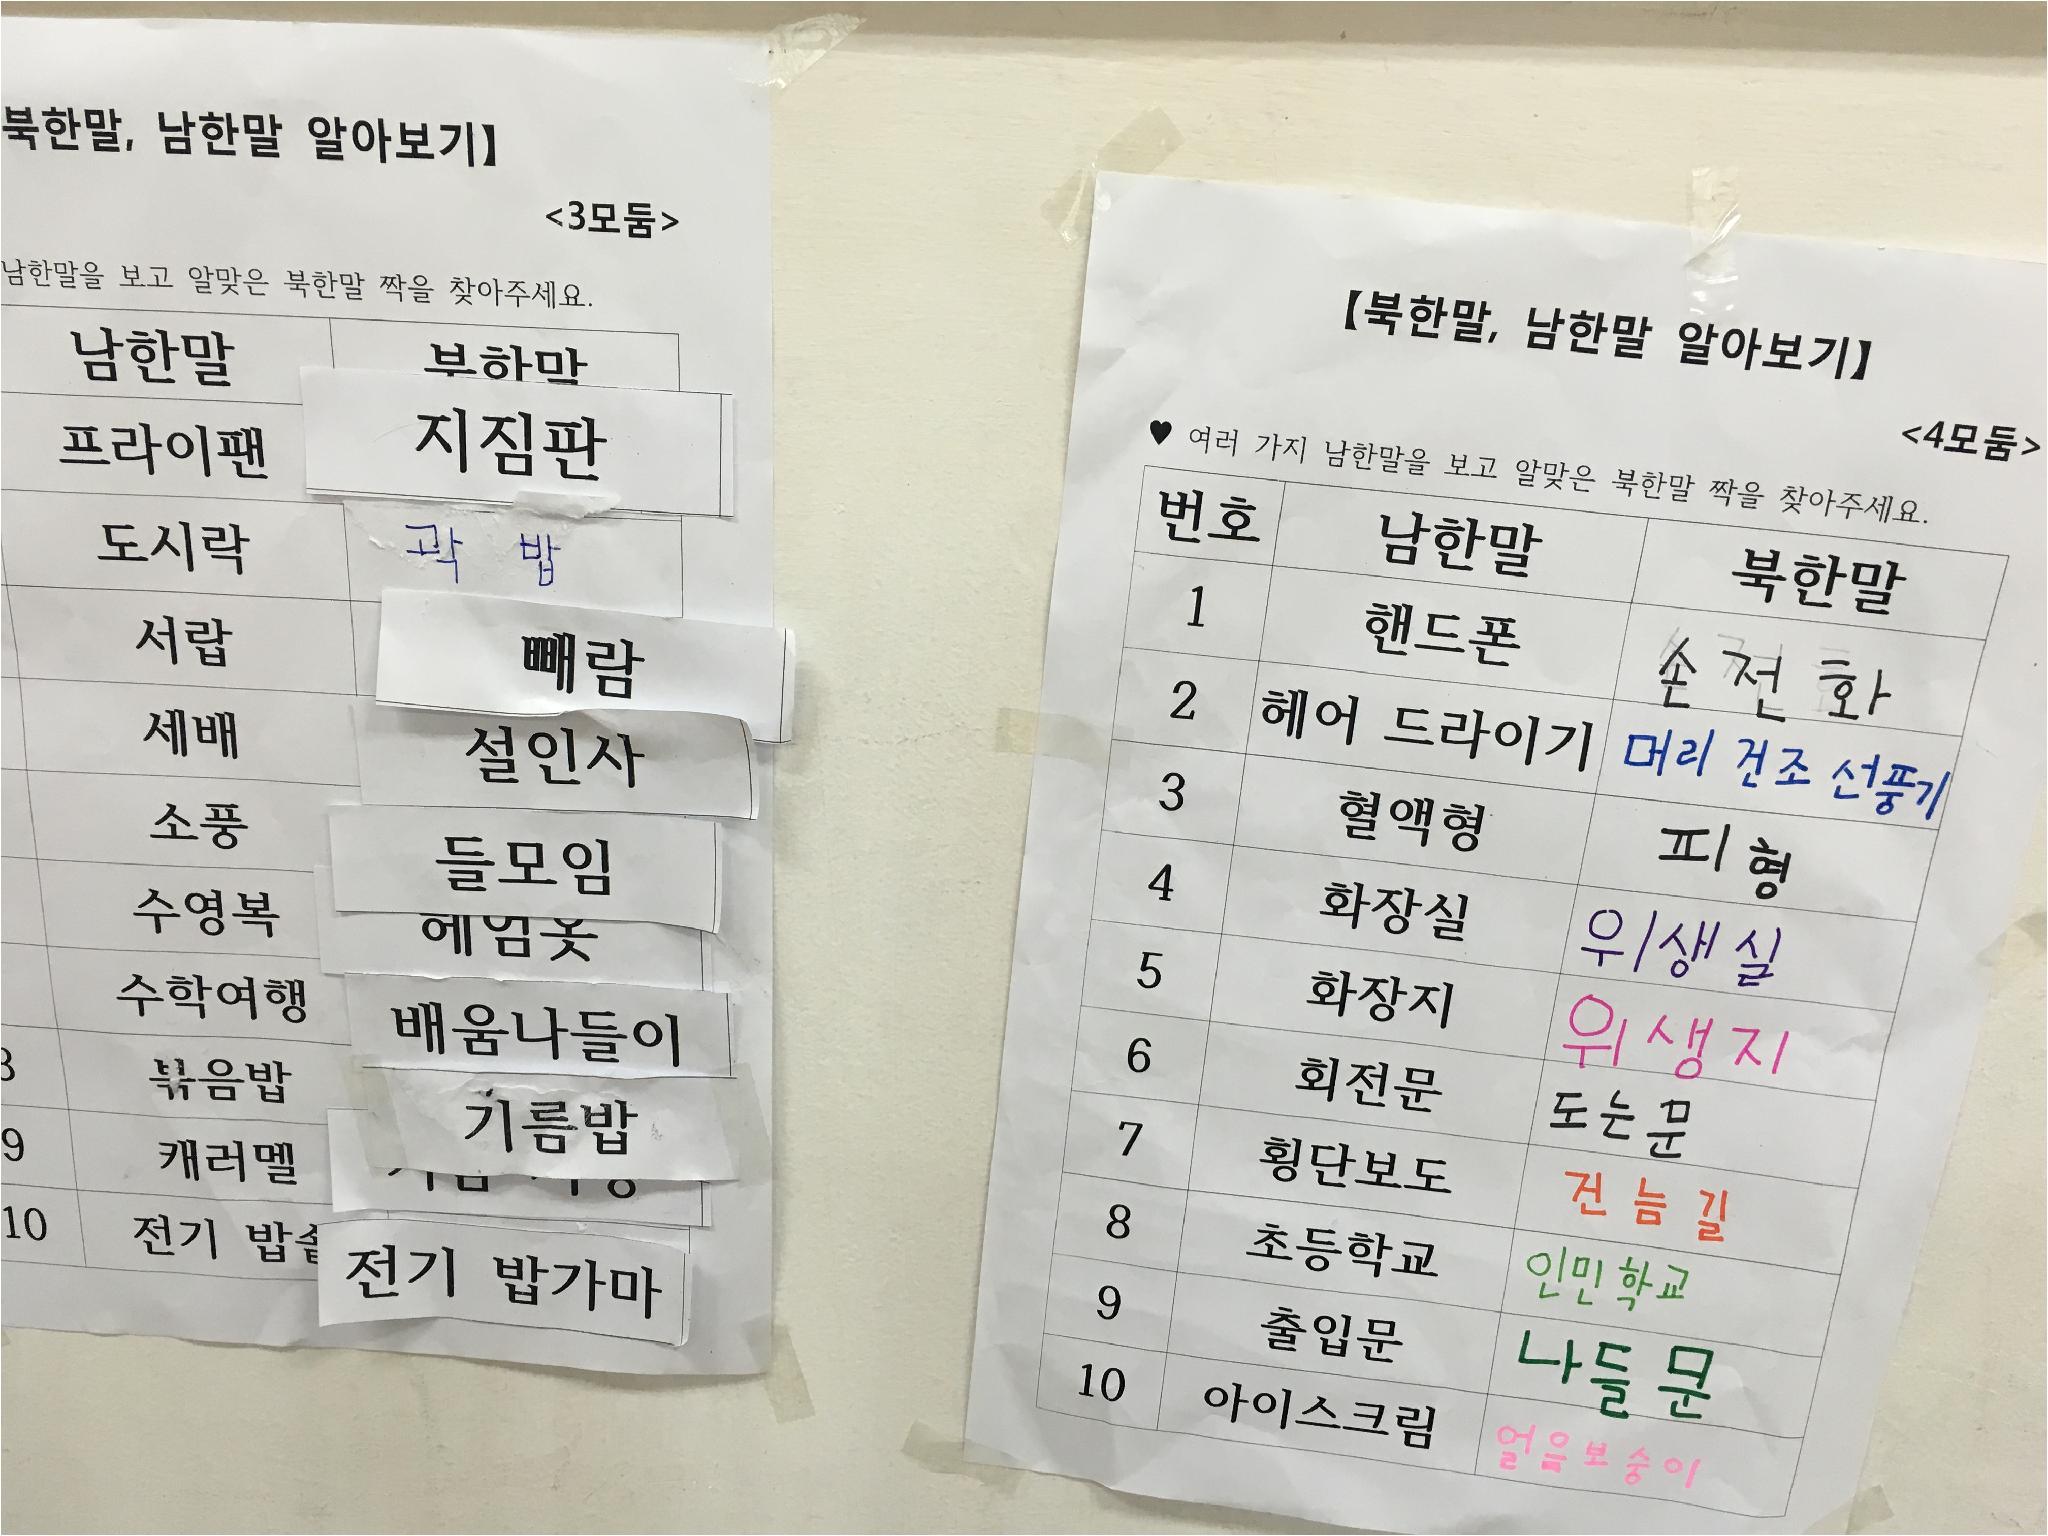 북한말, 남한말 알아보기】
<3모둠>
남한말을 보고 알맞은 북한말 짝을 찾아주세요.
남한말 북한말
프라이팬 지짐판
도시락 곽 밥
서랍 빼람
세배 설인사
소풍 들모임
수영복 헤엄옷
수학여행 배움나들이
8 볶음밥 기름밥
9 캐러멜
10 전기 밥솥 전기 밥가마
【북한말, 남한말 알아보기】
<4모둠>
♥ 여러 가지 남한말을 보고 알맞은 북한말 짝을 찾아주세요.
번호 남한말 북한말
1 핸드폰 손전화
2 헤어 드라이기 머리 건조 선풍기
3 혈액형 피형
4 화장실 위생실
5 화장지 위생지
6 회전문 도는문
7 횡단보도 건늠길
8 초등학교 인민학교
9 출입문 나들문
10 아이스크림 얼음보숭이